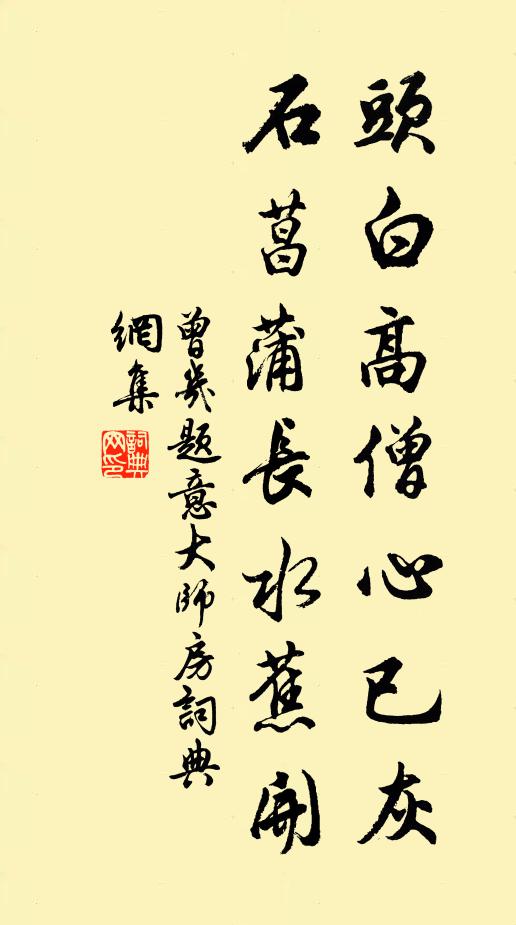 頭白高僧心已灰
石菖蒲長水蕉開
曾幾題意大師房詞典
網集
詞典
网印